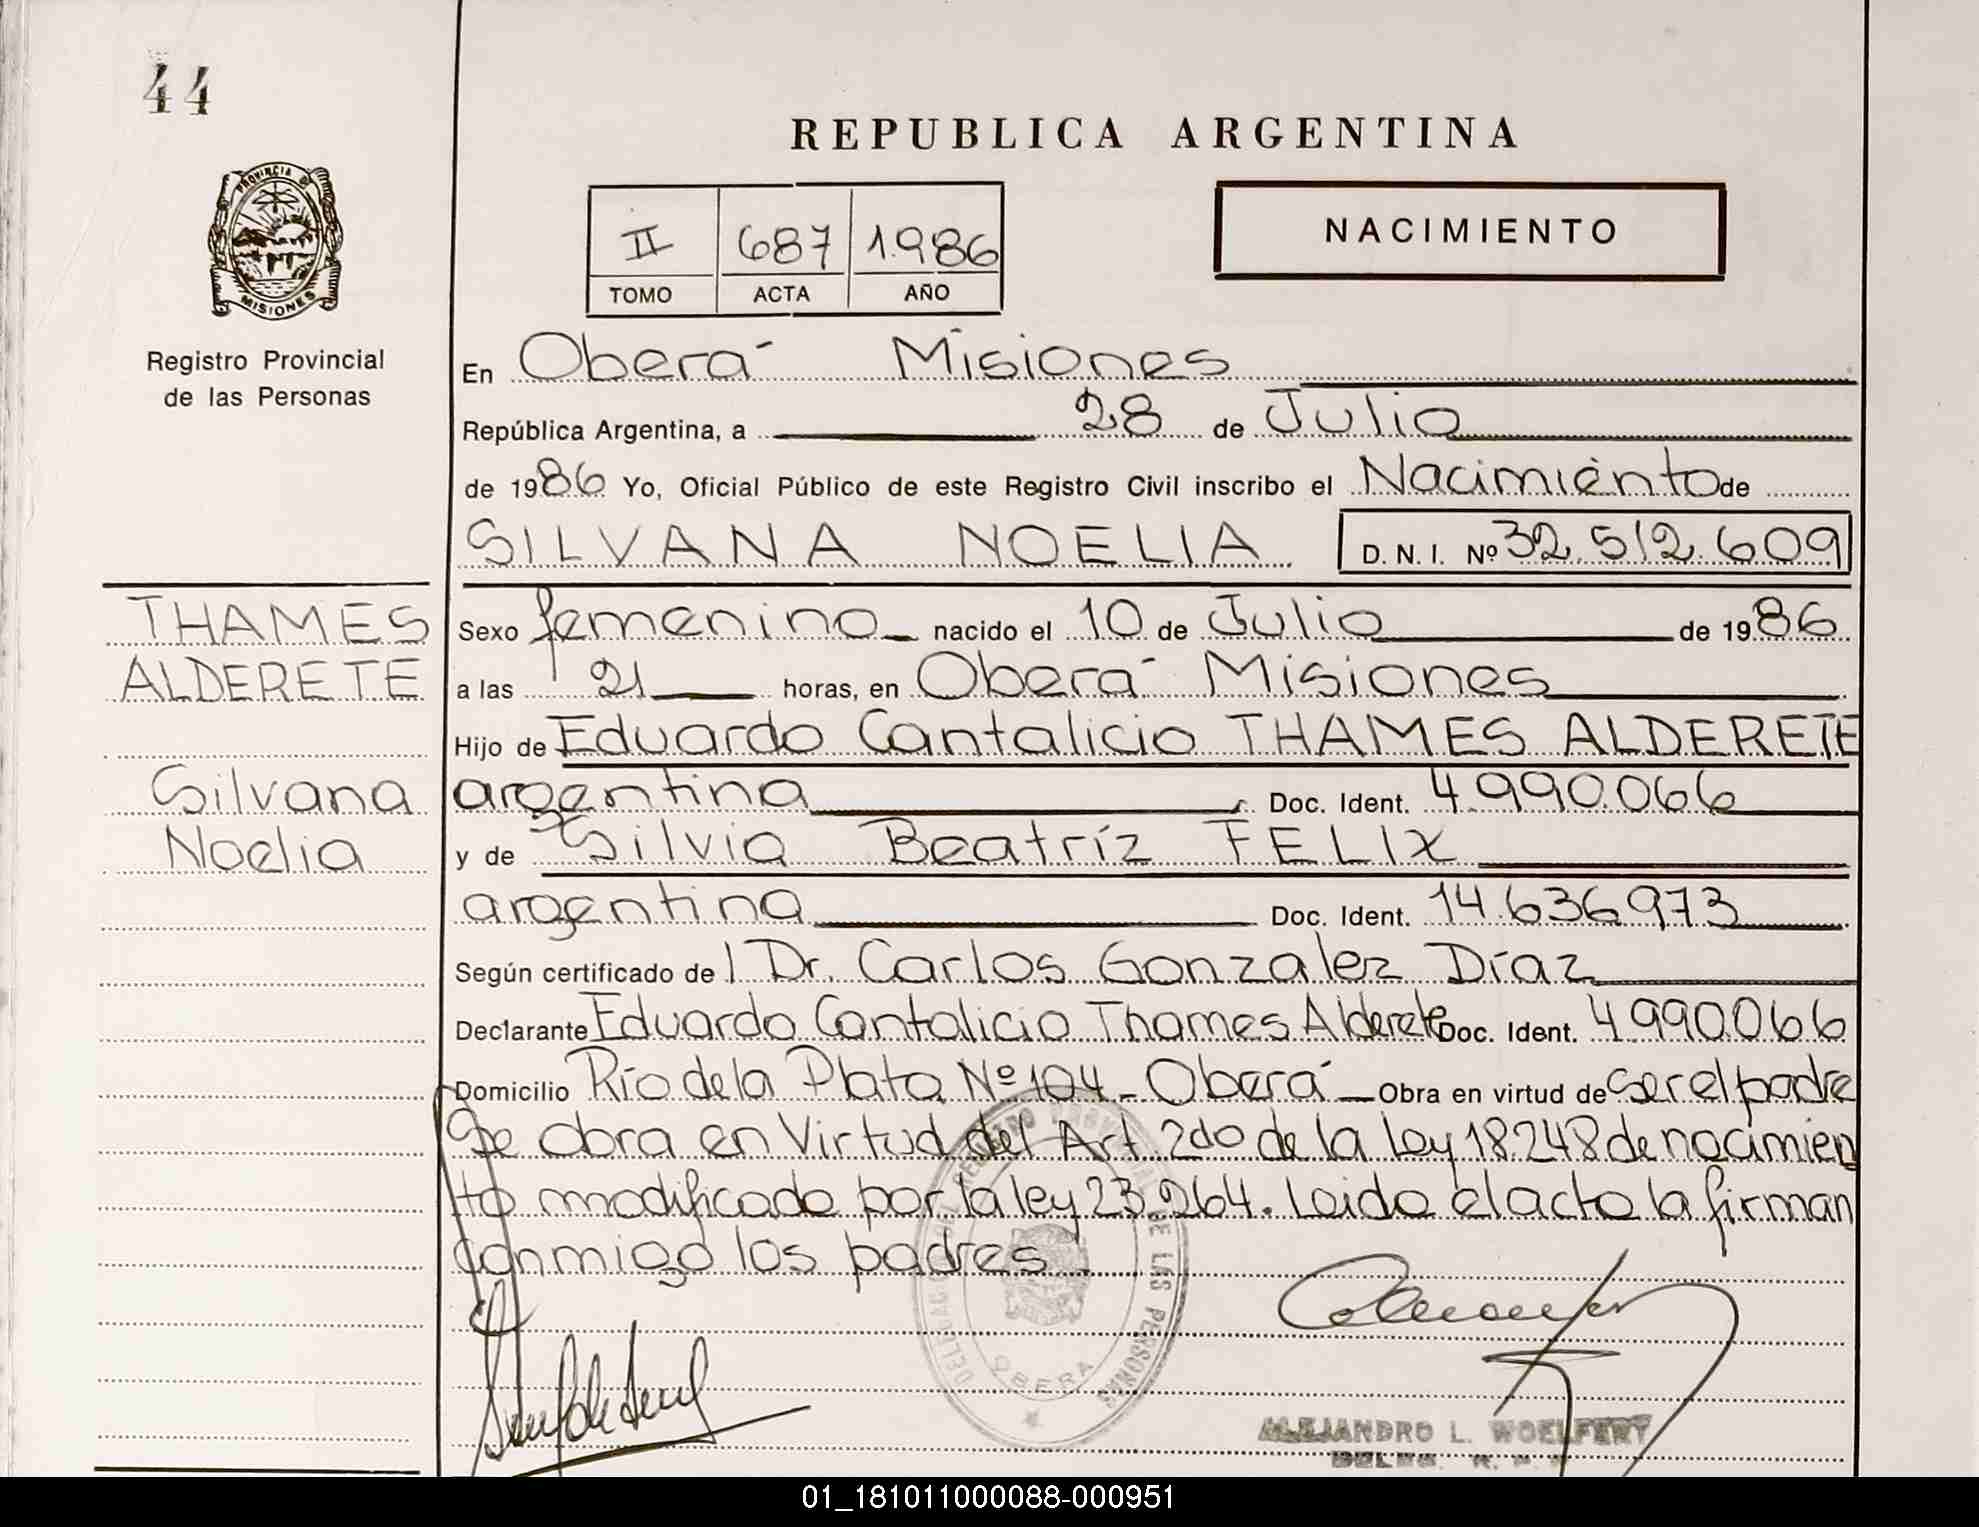 44
REPUBLICA ARGENTINA
PROVINCIA DE
MISIONES
II 687 1986
TOMO ACTA AÑO
NACIMIENTO
Registro Provincial
de las Personas
En Oberá Misiones
República Argentina, a 28 de Julio
de 1986 Yo, Oficial Público de este Registro Civil inscribo el Nacimiento de
SILVANA NOELIA D. N. I. Nº 32.512.609
THAMES
ALDERETE
Silvana
Noelia
Sexo femenino nacido el 10 de Julio de 1986
a las 21 horas, en Oberá Misiones
Hijo de Eduardo Cantalicio THAMES ALDERETE
argentina Doc. Ident. 4.990.066
y de Silvia Beatríz FELIX
argentina Doc. Ident. 14.636.973
Según certificado de l Dr. Carlos Gonzalez Díaz
Declarante Eduardo Cantalicio Thames Alderete Doc. Ident. 4.990.066
Domicilio Río de la Plata Nº 104 - Oberá Obra en virtud de ser el padre
Se obra en Virtud del Art 2do de la Ley 18.248 de nacimien
to modificado por la ley 23.264. Leido el acto la firman
conmigo los padres
DELEGACION DEL REGISTRO PROVINCIAL DE LAS PERSONAS
OBERA
ALEJANDRO L. WOELFERT
01_181011000088-000951